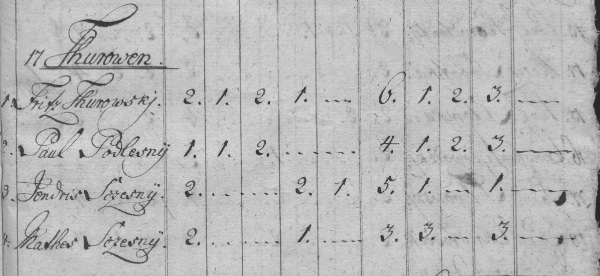 17 Thurowen.
1. Fritz Thurowskÿ. 2. 1. 2. 1. — 6. 1. 2. 3. —
2. Paul Podlesnÿ 1. 1. 2. — 4. 1. 2. 3. —
3. Jendris Sczesnÿ. 2. — 2. 1. 5. 1. — 1. —
4. Mathes Sczesnÿ 2. — 1. — 3. 3. — 3. —